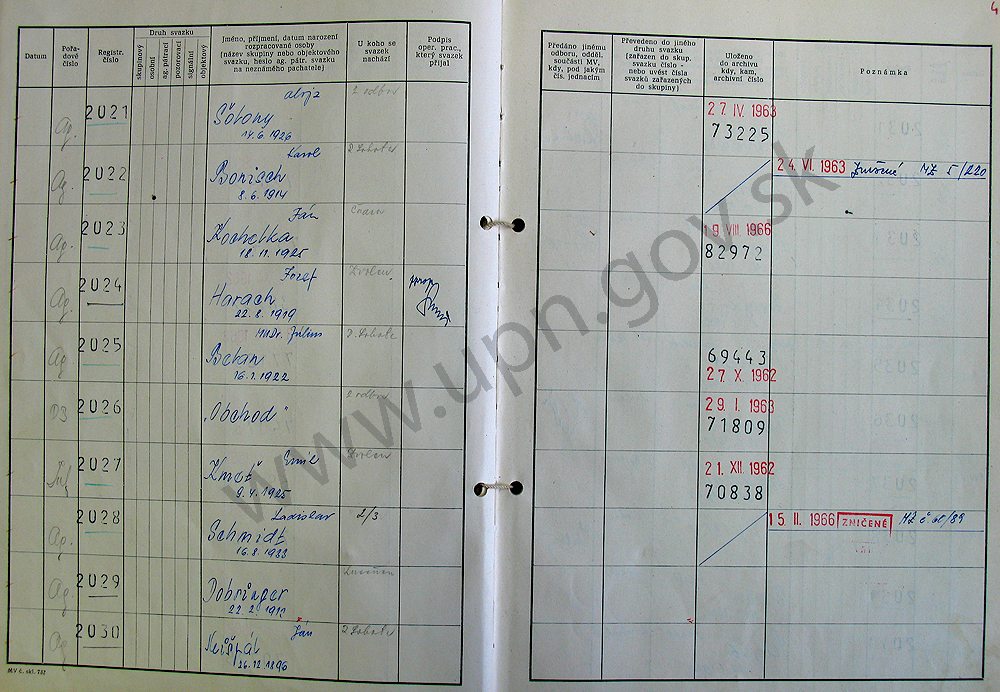 4
Datum
Pořa-
dové
číslo
Registr.
číslo
Druh svazku
skupinový
osobní
ag. pátrací
pozorovací
signální
objektový
Jméno, příjmení, datum narození
rozpracované osoby
(název skupiny nebo objektového
svazku, heslo ag. pátr. svazku
na neznámého pachatele)
U koho se
svazek
nachází
Podpis
oper. prac.,
který svazek
přijal
Předáno jinému
odboru, odděl.,
součásti MV,
kdy, pod jakým
čís. jednacím
Převedeno do jiného
druhu svazku
(zařazen do skup.
svazku číslo -
nebo uvést čísla
svazků zařazených
do skupiny)
Uloženo
do archivu
kdy, kam,
archivní číslo
Poznámka
Ag.
2021
14. 6. 1926
2 odbor
27. IV. 1963
73225
Ag.
2022
Karol
Bonisch
8. 6. 1914
24. VI. 1963 MZ 5/220
Ag.
2023
Ján
Kochelka
18. 11. 1925
19 VIII 1966
82972
Ag.
2024
Jozef
Harach
22. 2. 1919
Zvolen
Ag
2025
MUDr. Július
Betan
16. 1. 1922
69443
27. X. 1962
2026
"Obchod"
2 odbor
29. I. 1963
71809
2027
Emil
Kmeť
9. 4. 1925
Zvolen
21. XII. 1962
70838
Ag.
2028
Ladislav
Schmidt
16. 8. 1933
2/3
15. II. 1966 ZNIČENÉ
Ag.
2029
Dobringer
Ag
2030
Ján
26. 12. 1896
MV č. skl. 732
www.upn.gov.sk